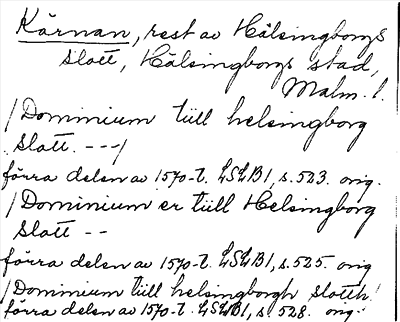 Kärnan, rest av Hälsingborgs
slott, Hälsingborgs stad,
Malm. l.
/Dominium till helsingborg
slott. ---/
förra delen av 1570-t. LSLB1, s. 523. orig.
/Dominium er till Helsingborg
slott --
förra delen av 1570-t. LSLB1, s. 525. orig
/Dominium till helsingborgh slotth/
förra delen av 1570-t. LSLB1, s 528. orig.